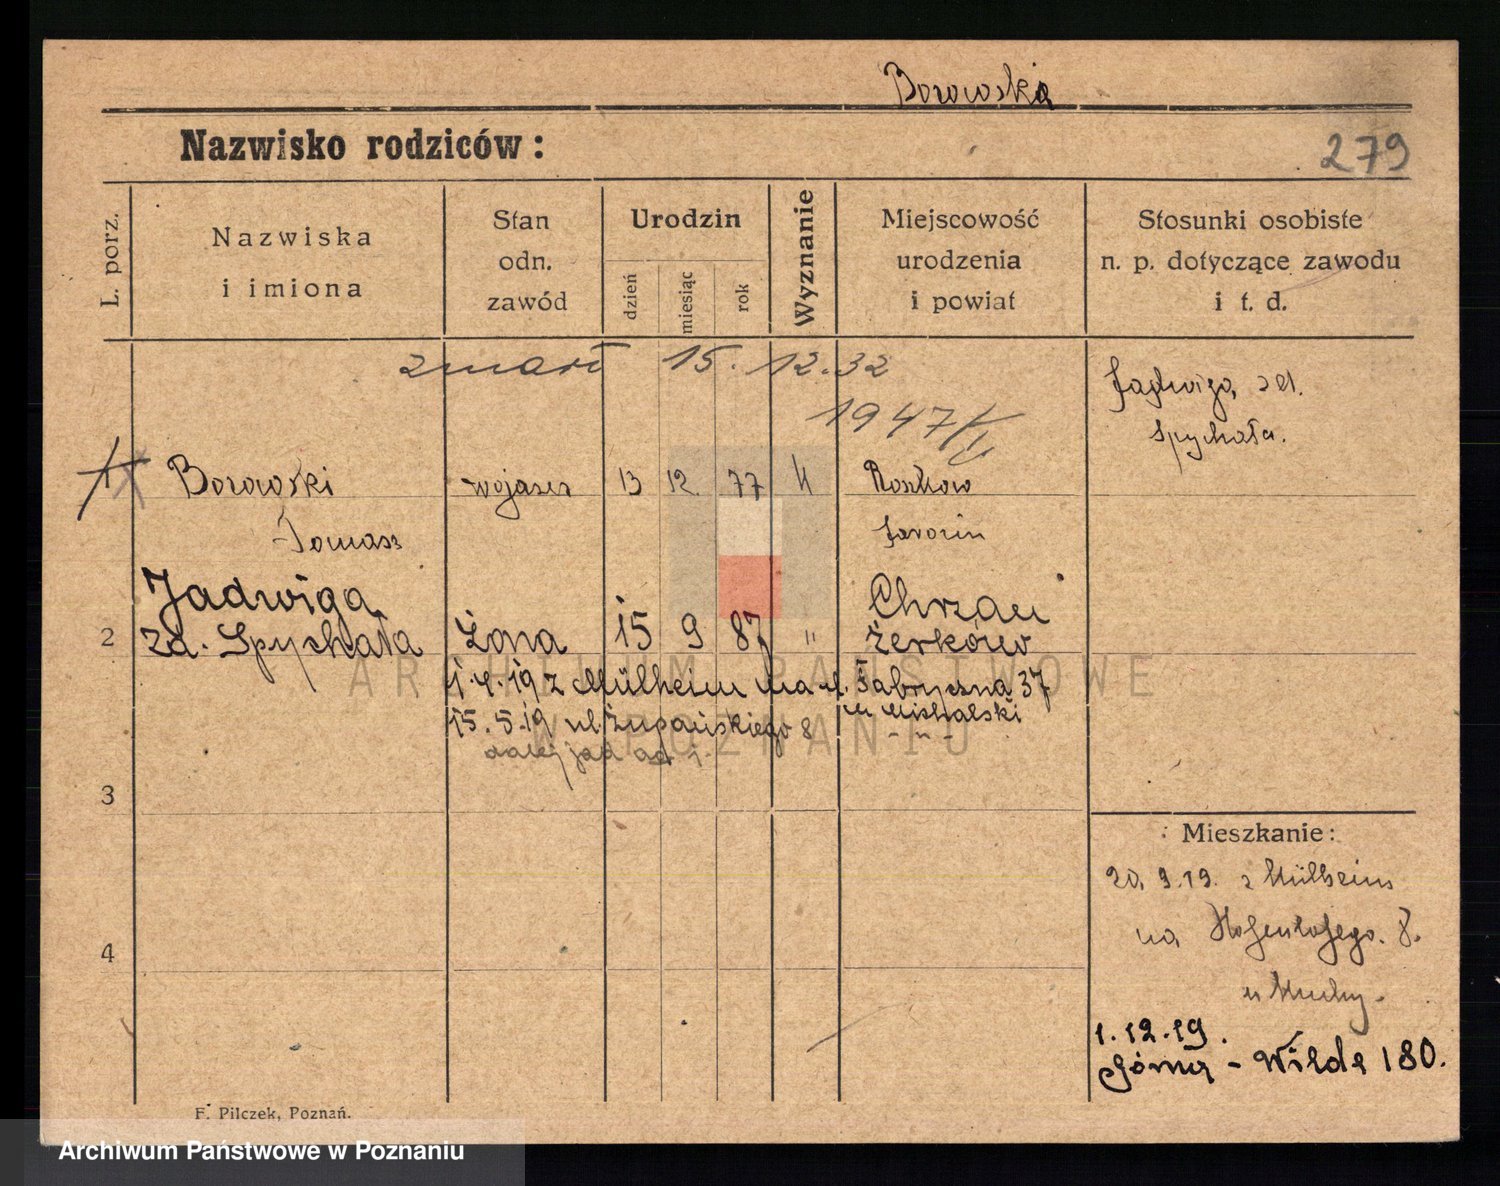 Borowska
Nazwisko rodziców:
279
L. porz.
Nazwiska
i imiona
Stan
odn.
zawód
Urodzin
dzień
miesiąc
rok
Wyznanie
Miejscowość
urodzenia
i powiat
Stosunki osobiste
n. p. dotyczące zawodu
i t. d.
zmarł 15. 12. 32
1947/
Jadwiga zd.
Spychała.
1 Borowski 13 12. 77 Roszkow
Tomasz Jarocin
Jadwiga Chrzan
2 zd. Spychała Żona 15 9 87 " Żerków
z Mülheim na ul. Fabryczna 37
u Michalski
15. 5. 19 ul Żupańskiego 8 - " -
3
Mieszkanie:
20. 9. 19. z Mülheim
na Hohenlohego. 8.
4
1. 12. 19.
Górna - Wilda 180.
F. Pilczek, Poznań.
ARCHIWUM PAŃSTWOWE
W POZNANIU
Archiwum Państwowe w Poznaniu